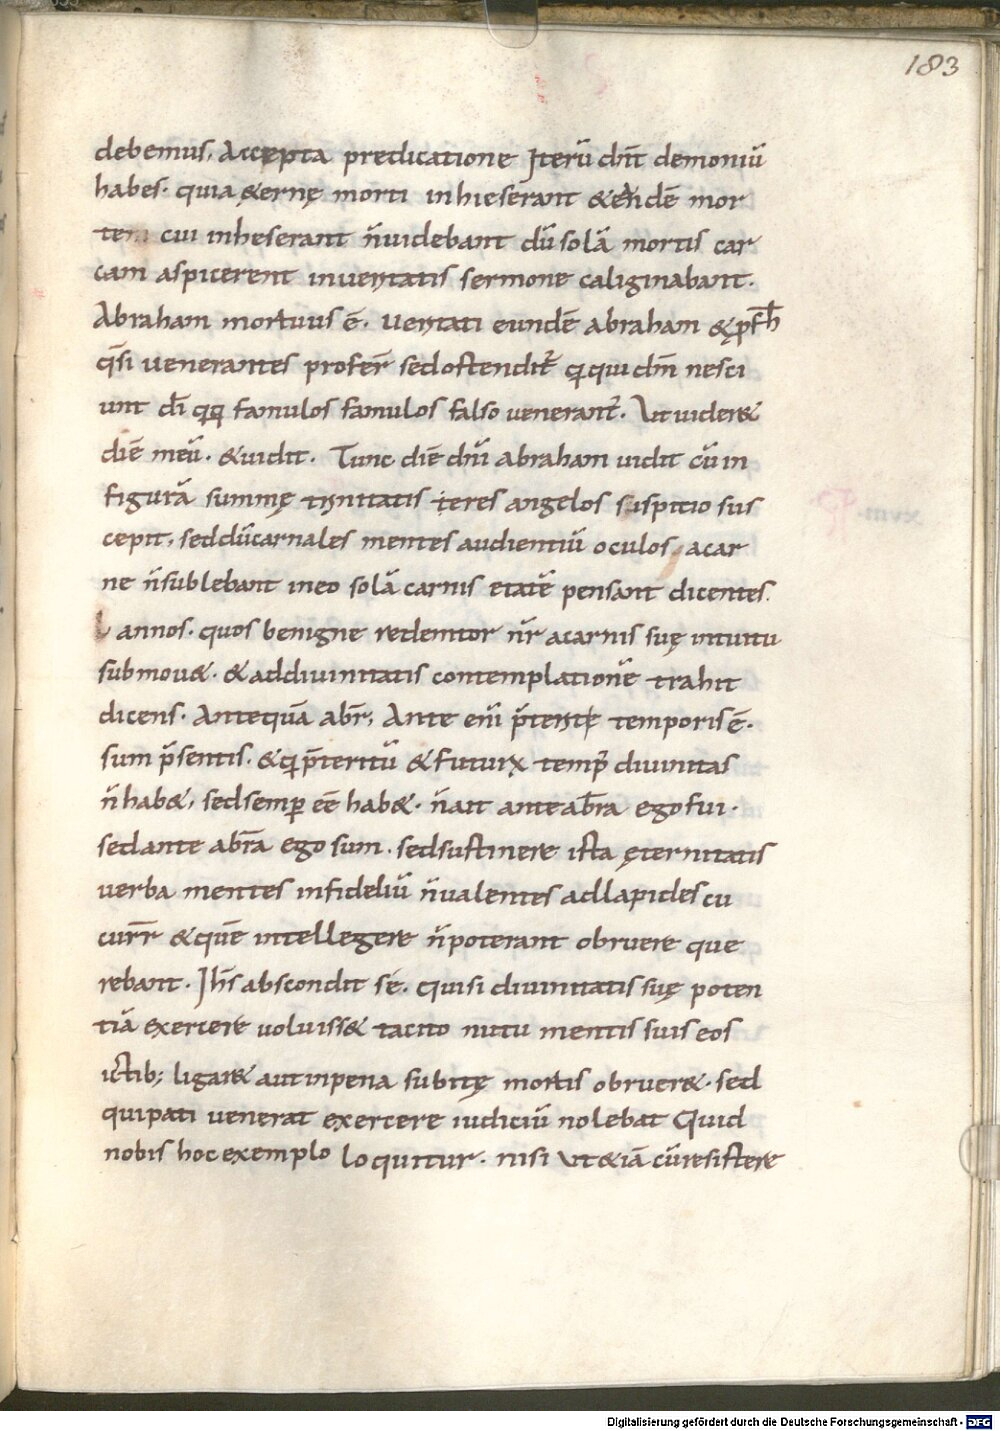 183
debemus, Accepta predicatione Iterū dn̄t demoniū
habes· quia &ernę morti inhieserant & eādē mor
tem cui inheserant n̄ uidebant dū solā mortis car
cam aspicerent inueritatis sermone caliginabant·
Abraham mortuus ē· ueritati eundē abraham &
q̄si uenerantes profer̄ sed ostendit̄ qui dm̄ nesci
unt dī famulos famulos falso uenerant̄· Ut uider&
diē meū· & uidit· Tunc diē dn̄i abraham uidit cū in
figurā summę trinitatis teres angelos suspitio sus
cepit, sed dū carnales mentes audientiū oculos acar
ne n̄ sublebant ineo solā carnis etatē pensant dicentes·
L annos· quos benigne redemtor nr̄ acarnis suę intuitu
submou&· & addiuinitatis contemplationē trahit
dicens· Antequā abr̄, Ante enī p̄teritę temporis ē·
sum p̄sentis· & q p̄teritū & futurū temp̄ diuinitas
n̄ hab&, sed semp̱ eē hab&· n̄ ait ante abr̄a ego fui·
sed ante abr̄a ego sum· sed sustinere ista ęternitatis
uerba mentes infideliū n̄ ualentes ad lapides cu
curr̄r & quē intellegere n̄ poterant obruere que
rebant· Ih̄s abscondit sé· quisi diuinitatis suę poten
tiā exercere uoluiss& tacito nutu mentis suis eos
ictib; ligar& aut inpena subitę mortis obruer&· sed
qui pati uenerat exercere iudiciū nolebat Quid
nobis hoc exemplo loquitur· nisi ut &iā cū resistere
Digitalisierung gefördert durch die Deutsche Forschungsgemeinschaft - DFG